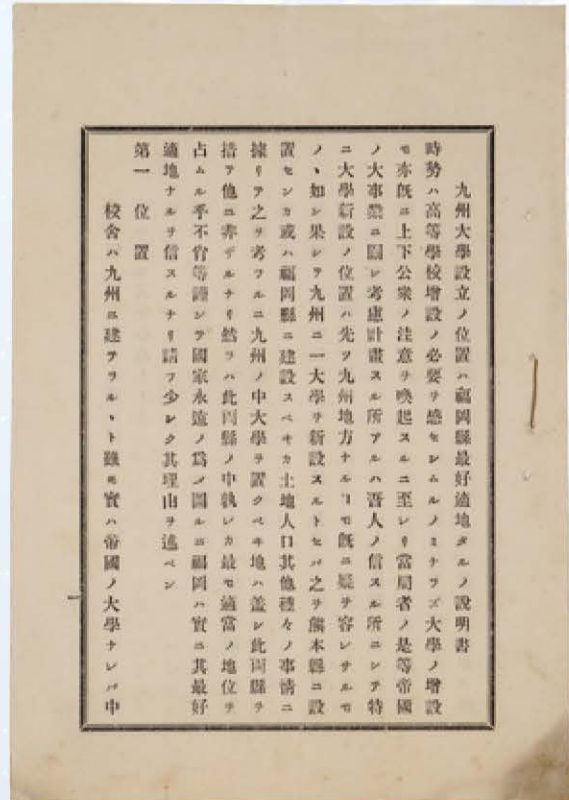 九州大學設立ノ位置ハ福岡縣最好適地タルノ說明書
時勢ハ高等學校增設ノ必要ヲ感セシムルノミナラズ大學ノ增設
モ亦旣ニ上下公衆ノ注意ヲ喚起スルニ至レリ當局者ノ是等帝國
ノ大事業ニ關シ考慮計畫スル所アルハ吾人ノ信スル所ニシテ特
ニ大學新設ノ位置ハ先ツ九州地方ナルヿモ旣ニ疑ヲ容レサルモ
ノヽ如シ果シテ九州ニ一大學ヲ新設スルトセバ之ヲ熊本縣ニ設
置センカ或ハ福岡縣ニ建設スベキカ土地人口其他種々ノ事情ニ
據リテ之ヲ考フルニ九州ノ中大學ヲ置クベキ地ハ蓋シ此兩縣ヲ
措テ他ニ非ザルナリ然ラハ此兩縣ノ中孰レカ最モ適當ノ地位ヲ
占ムル乎不肖等謹シテ國家永遠ノ爲メ圖ルニ福岡ハ實ニ其最好
適地ナルヲ信スルナリ請フ少シク其理由ヲ述ベン
第一　位置
校舍ハ九州ニ建テラルヽト雖モ實ハ帝國ノ大學ナレバ中
一